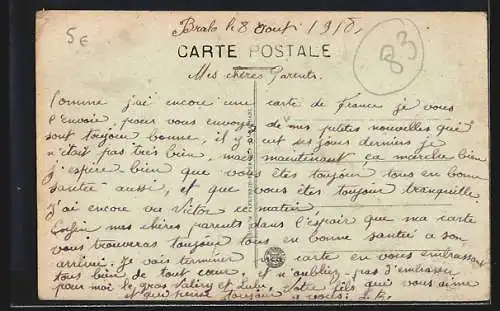 5€
Bralo le 8 Aout 1918,
83
CARTE POSTALE
Mes chères Parents.
Comme j'ai encore une carte de France je vous
l'envoie pour vous envoyer de mes petites nouvelles qui
sont toujour bonne, il y eut ses jours derniers je
n'était pas très bien, mais maintenant ça marche bien
j'espère bien que vous êtes toujour tous en bonne
santée aussi, et que vous êtes toujour tranquille.
J'ai encore vu Victor ce matin.
Enfin mes chères parents dans l'éspoir que ma carte
vous trouveras toujour tous en bonne santée a son
arrivée. je vais terminer ma carte en vous embrassant
tous bien de tout cœur, et n'oubliez-pas d'embrasser
pour moi le gros Valéry et Lulu, Votre fils qui vous aime
et qui pense toujour a vous: